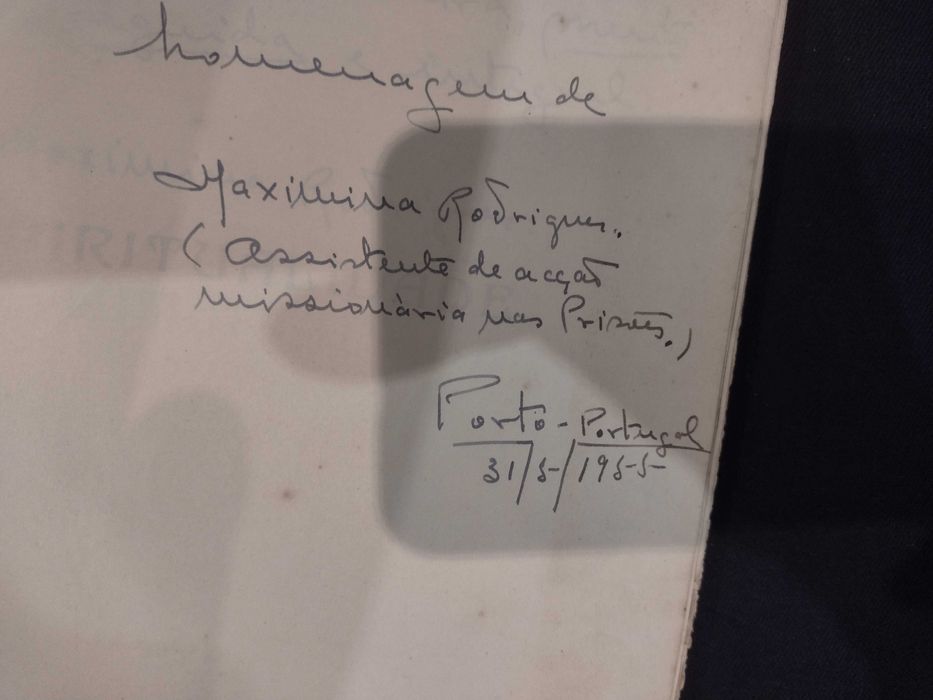 homenagem de
Maximina Rodrigues.
(Assistente de acção
missionária nas Prisões.)
Porto - Portugal
31/5/1955